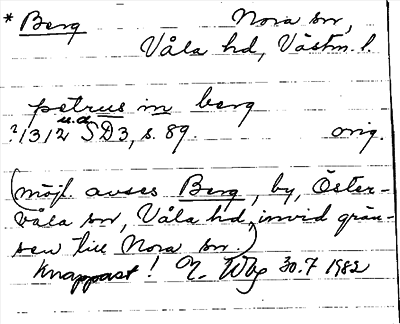 * Berg Nora sn,
Våla hd, Västm. l.
petrus in berg
?1312 u.d. SD3, s. 89. orig.
(möjl. avses Berg, by, Öster-
våla sn, Våla hd, invid grän-
sen till Nora sn.)
Knappast! 30.7 1982